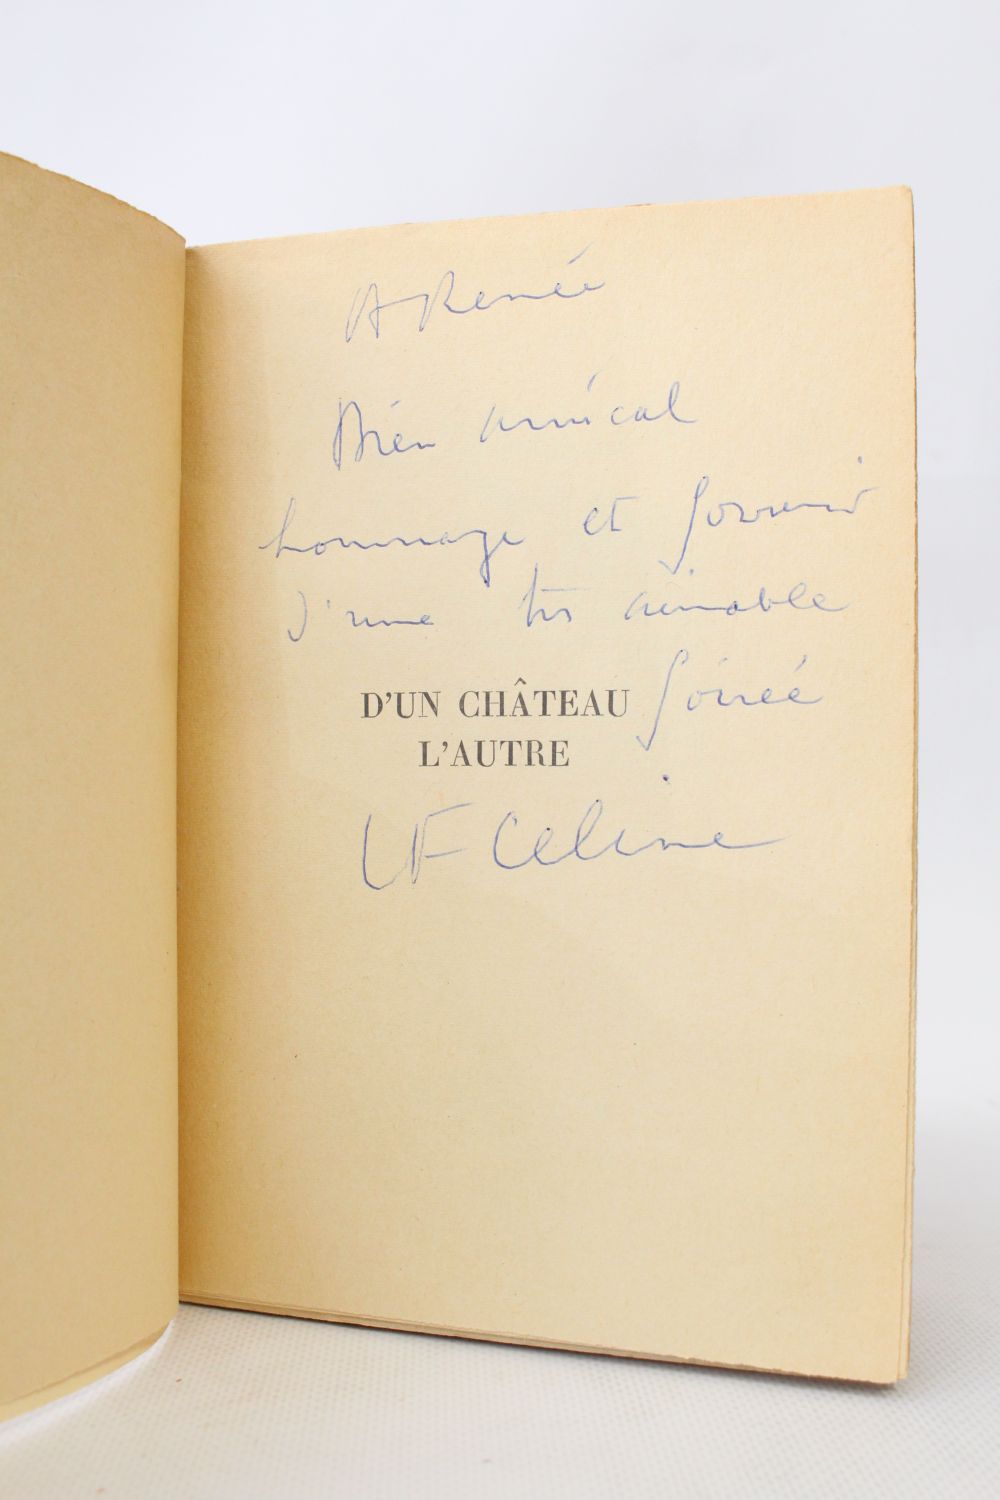 A Renée
Bien amical
hommage et souvenir
d'une très aimable
soirée
D'UN CHÂTEAU
L'AUTRE
LF Celine